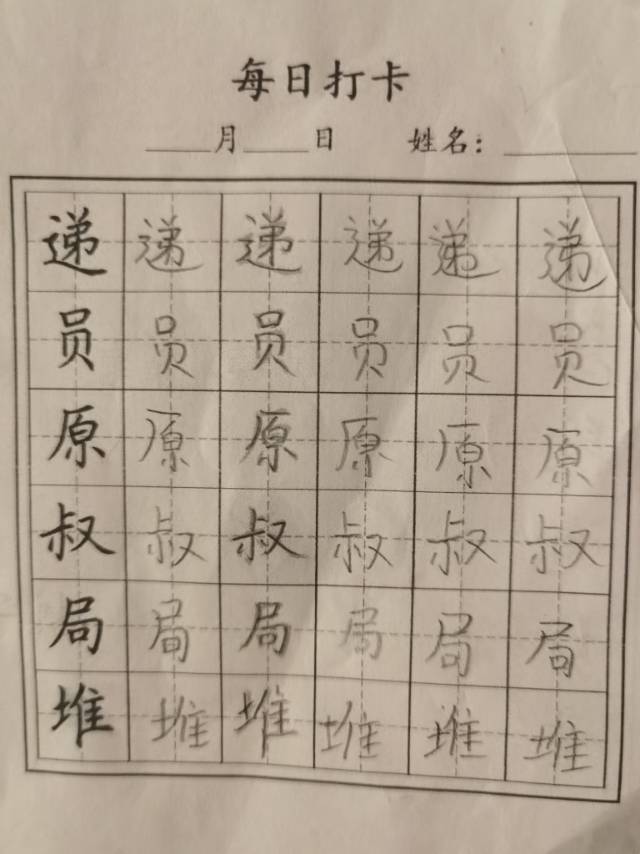 每日打卡
月 日 姓名：
递 递 递 递 递 递
员 员 员 员 员 员
原 原 原 原 原 原
叔 叔 叔 叔 叔 叔
局 局 局 局 局 局
堆 堆 堆 堆 堆 堆